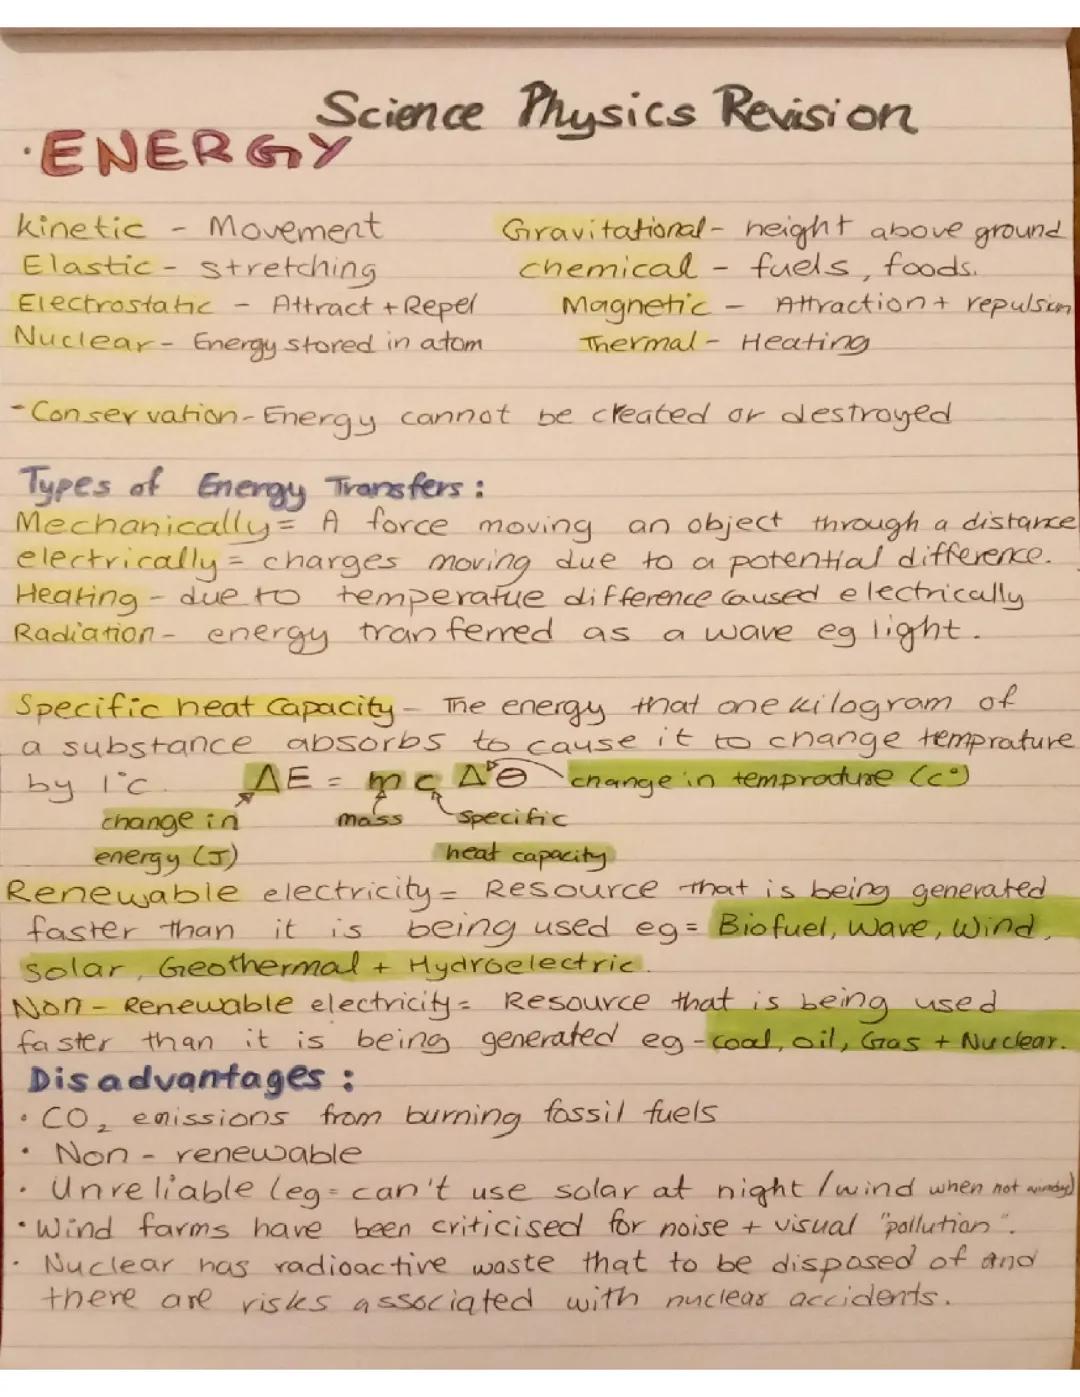 Science Physics Revision
·ENERGY
Kinetic - Movement
Gravitational - height above ground
Elastic - stretching
chemical - fuels, foods.
Electrostatic - Attract + Repel
Magnetic - Attraction + repulsion
Nuclear - Energy stored in atom
Thermal - Heating
- Conservation - Energy cannot be created or destroyed
Types of Energy Transfers :
Mechanically = A force moving an object through a distance
electrically = charges moving due to a potential difference.
Heating - due to temperatue difference caused electrically
Radiation - energy tranferred as a wave eg light.
Specific heat capacity - The energy that one kilogram of
a substance absorbs to cause it to change temprature
by 1°c.
ΔE = m c Δ°θ
change in temprature (c°)
change in energy (J)
mass
specific heat capacity
Renewable electricity = Resource that is being generated
faster than it is being used eg = Biofuel, Wave, Wind,
solar, Geothermal + Hydroelectric.
Non - Renewable electricity = Resource that is being used
faster than it is being generated eg - coal, oil, Gas + Nuclear.
Disadvantages :
· CO₂ emissions from burning fossil fuels
· Non - renewable
· Unreliable (eg = can't use solar at night / wind when not windy)
· Wind farms have been criticised for noise + visual "pollution".
· Nuclear has radioactive waste that to be disposed of and
there are risks associated with nuclear accidents.